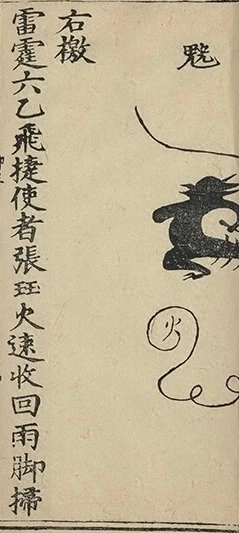 火
右檄
雷霆六乙飛捷使者張玨火速收回雨脚掃